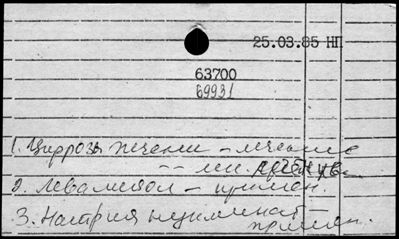 25.03.85 НП
63700
69931
1. Циррозы печени - лечение
-- лек.
2. Левамизол - примен.
3. Натрия нуклеинат - примен.